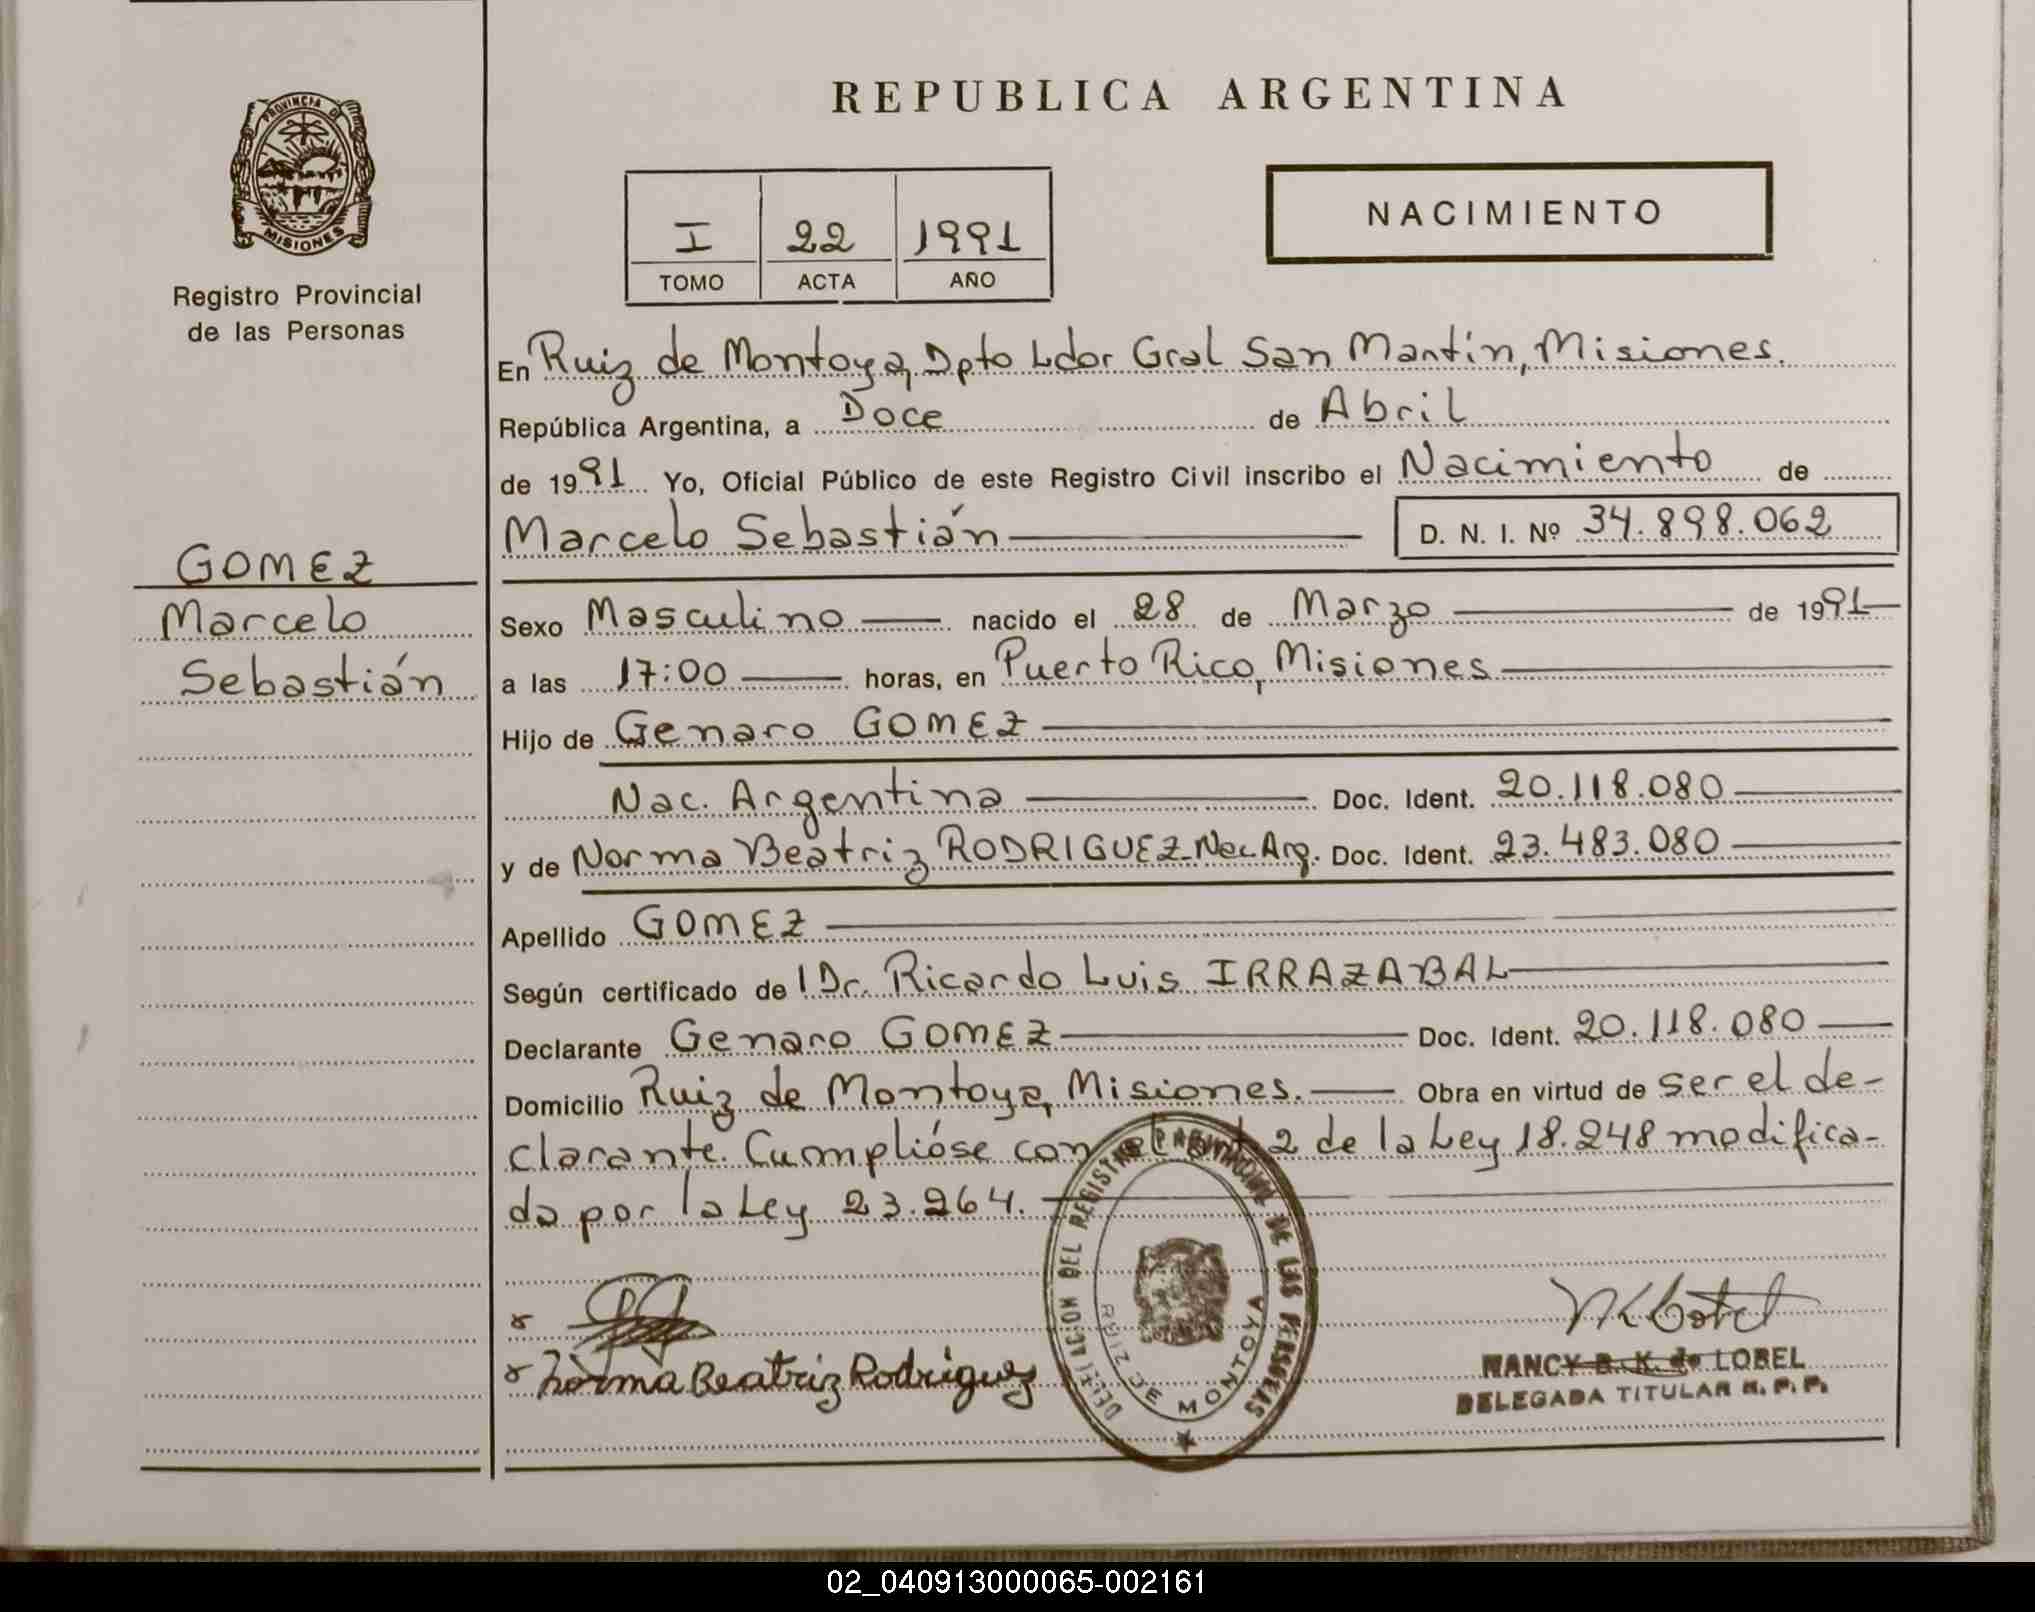 PROVINCIA DE
MISIONES
Registro Provincial
de las Personas
REPUBLICA ARGENTINA
I 22 1991
TOMO ACTA AÑO
NACIMIENTO
En Ruiz de Montoya, Dpto Ldor Gral San Martín, Misiones.
República Argentina, a Doce de Abril
de 1991 Yo, Oficial Público de este Registro Civil inscribo el Nacimiento de
Marcelo Sebastián D. N. I. Nº 34.898.062
GOMEZ
Marcelo
Sebastián
Sexo Masculino nacido el 28 de Marzo de 1991
a las 17:00 horas, en Puerto Rico, Misiones
Hijo de Genaro GOMEZ
Nac. Argentina Doc. Ident. 20.118.080
y de Norma Beatriz RODRIGUEZ-Nac. Arg. Doc. Ident. 23.483.080
Apellido GOMEZ
Según certificado de l Dr. Ricardo Luis IRRAZABAL
Declarante Genaro GOMEZ Doc. Ident. 20.118.080
Domicilio Ruiz de Montoya, Misiones. Obra en virtud de ser el de-
clarante. Cumplióse con el art 2 de la Ley 18.248 modifica-
da por la Ley 23.264.
DELEGACION DEL REGISTRO PROVINCIAL DE LAS PERSONAS
RUIZ DE MONTOYA
Norma Beatriz Rodriguez
NANCY B. K. de LOBEL
DELEGADA TITULAR R. P. P.
02_040913000065-002161